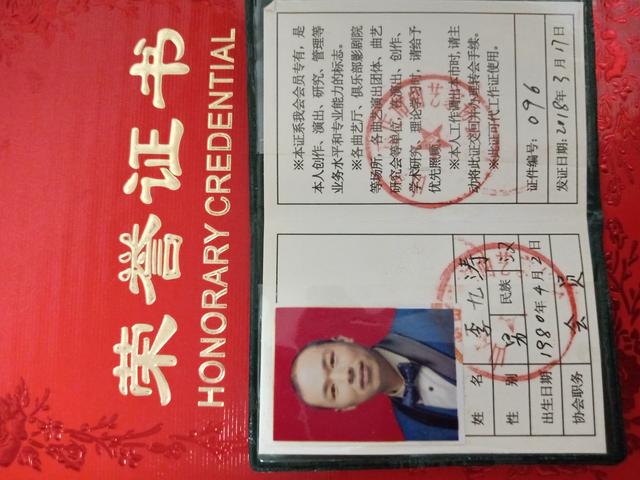 荣誉证书
HONORARY CREDENTIAL
※本证系我会会员专有，是
本人创作、演出、研究、管理等
业务水平和专业能力的标志。
※各曲艺厅、俱乐部影剧院
等场所，各曲艺演出团体、曲艺
研究会等单位，在演出、创作、
学术研究、理论学习时，请给予
优先照顾。
※本人工作调出本市时，请主
动将此证交回并办理转会手续。
※此证可代工作证使用。
证件编号：096
发证日期：2018年3月17日
姓名 李九涛
性别 男 民族 汉
出生日期 1980年4月2日
协会职务 会员